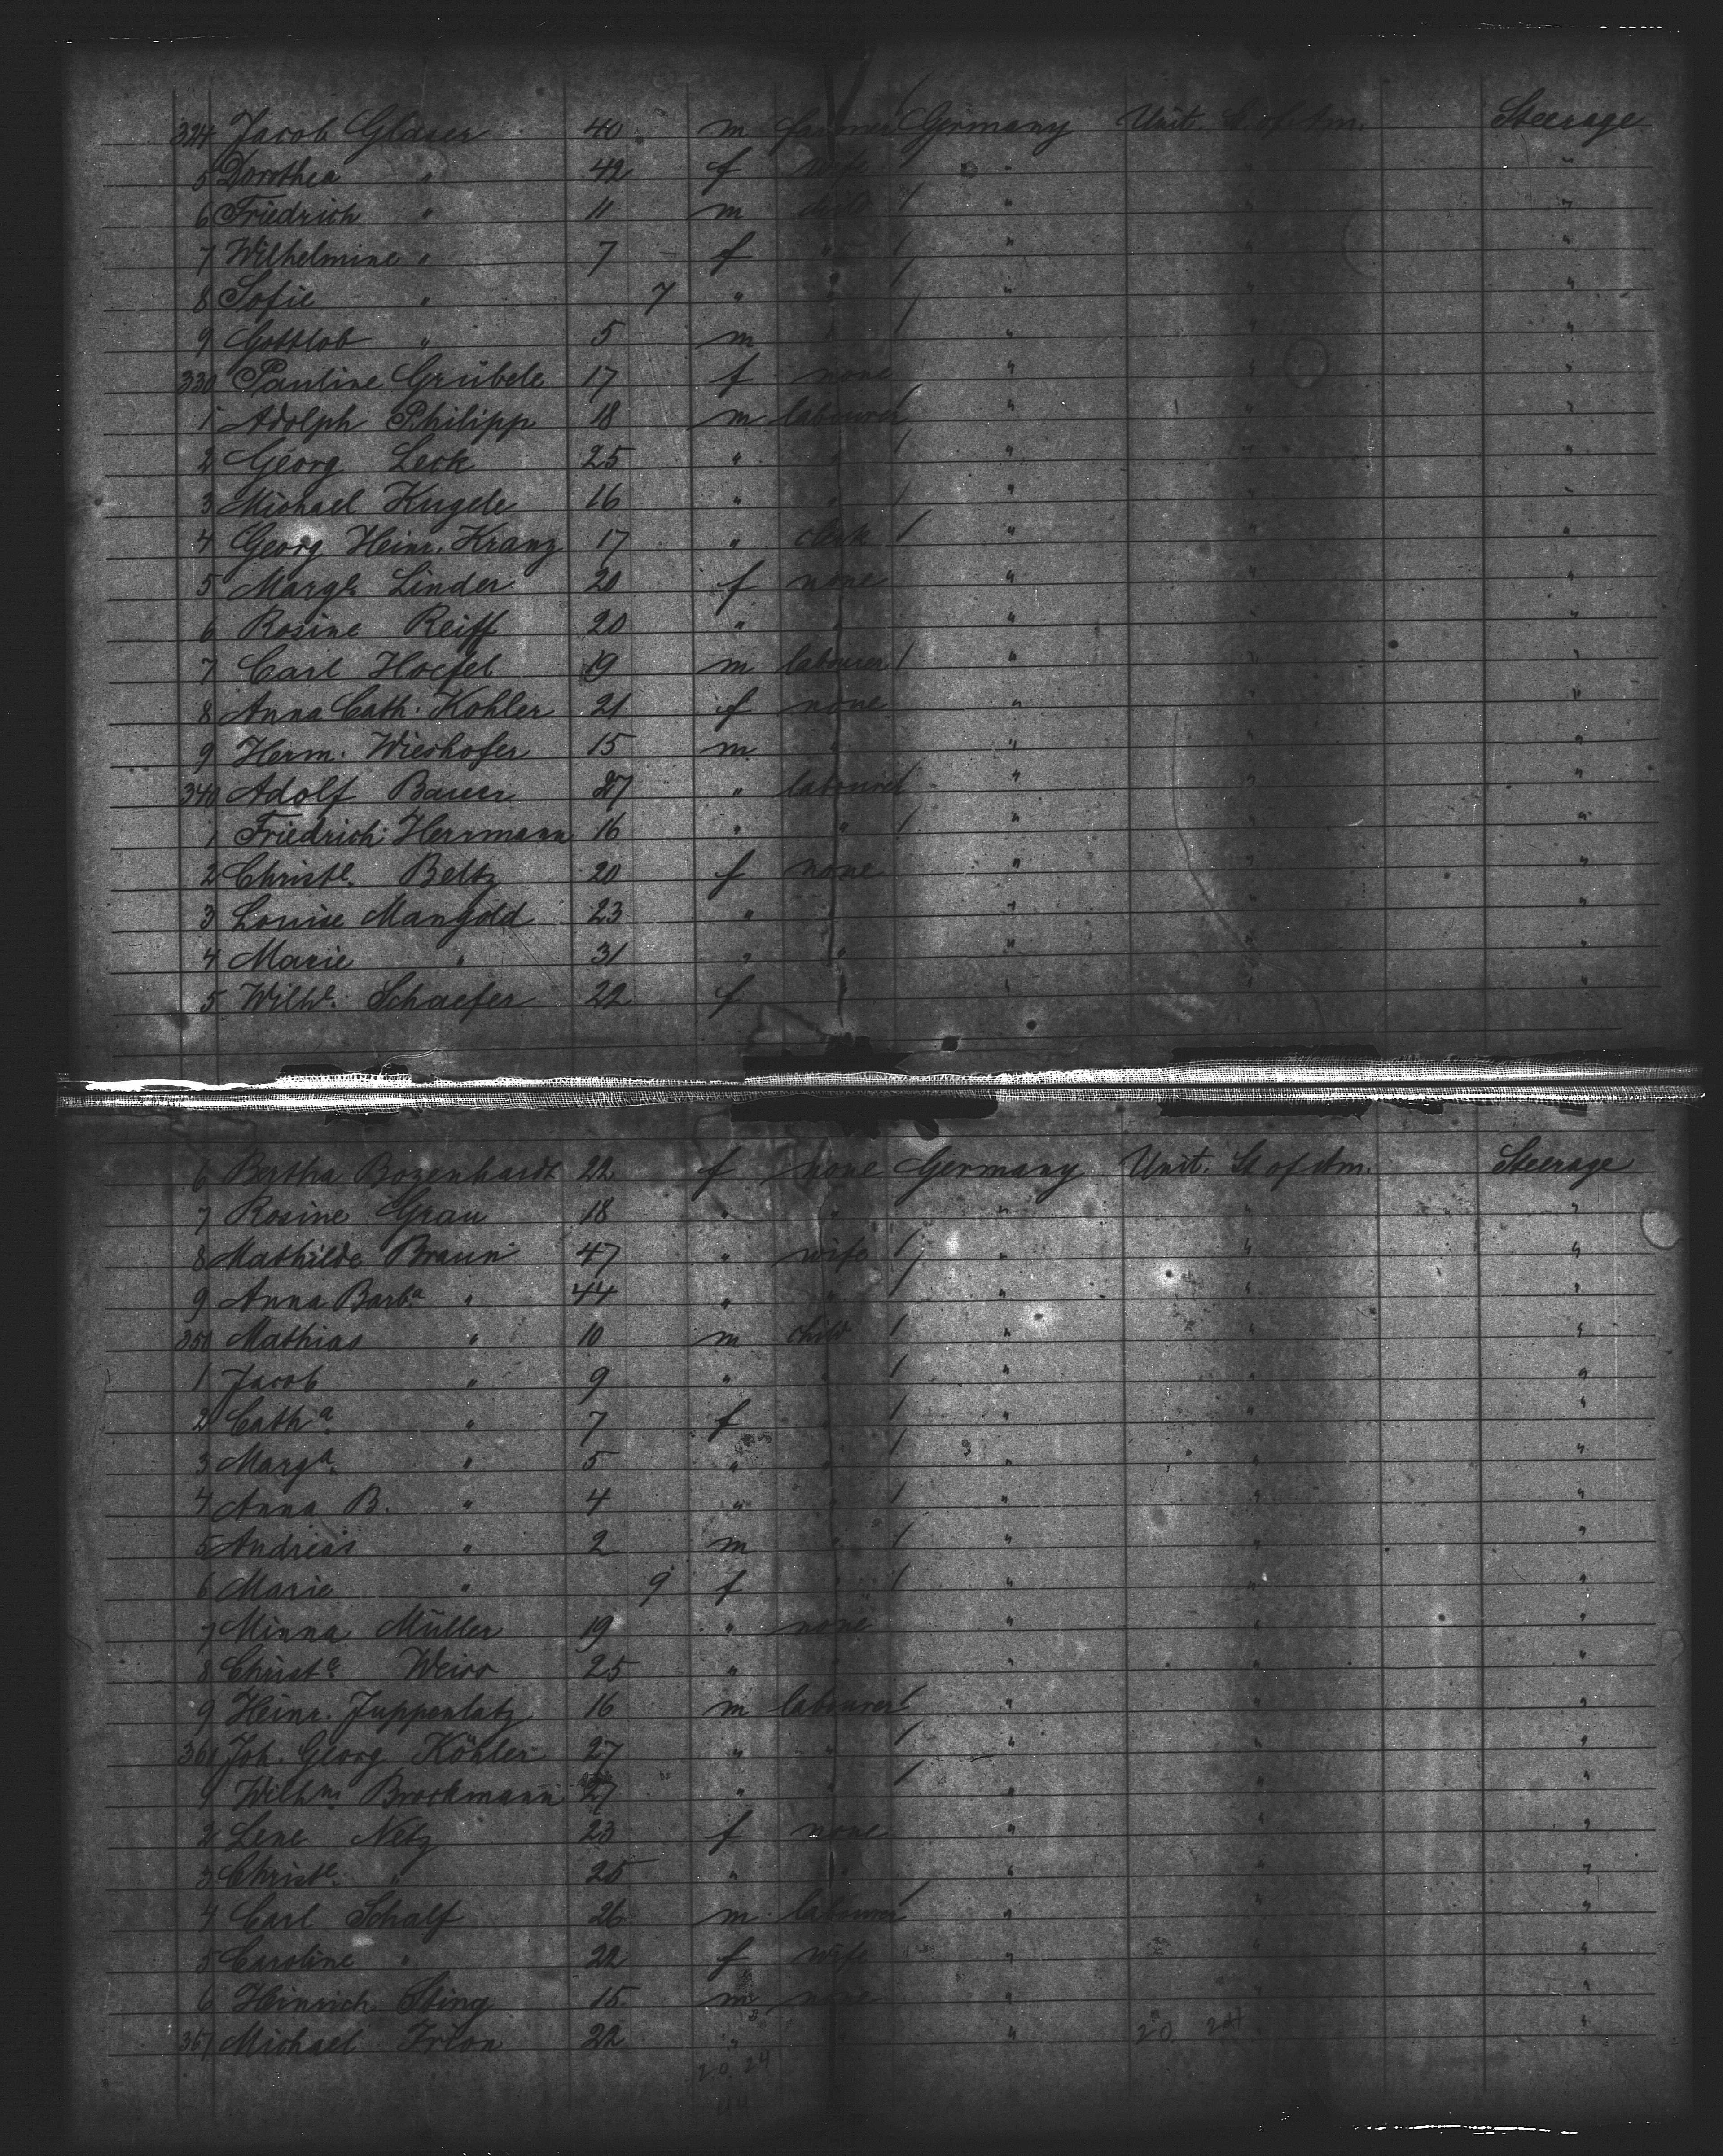 324 Jacob Glaser 40 m farmer Germany Unit. St of Am. Steerage
5 Dorothea " 42 f wife " " "
6 Friedrich " 11 m child " " "
7 Wilhelmine " 7 f " " " "
8 Sofie " 7 " " " " "
9 Gottlob " 5 m " " " "
330 Pauline Grübele 17 f none " " "
1 Adolph Philipp 18 m labourer " " "
2 Georg Leck 25 " " " " "
3 Michael Kugele 16 " " " " "
4 Georg Heinr. Kranz 17 " clerk " " "
5 Marg.e Linder 20 f none " " "
6 Rosine Reiff 20 " " " " "
7 Carl Hoefel 19 m labourer " " "
8 Anna Cath. Kohler 21 f none " " "
9 Herm. Wieshofer 15 m " " " "
340 Adolf Bauer 27 " labourer " " "
1 Friedrich Herrmann 16 " " " " "
2 Christe. Beltz 20 f none " " "
3 Louise Mangold 23 " " " " "
4 Marie " 31 " " " " "
5 Wilhe. Schaefer 22 f " " " "
6 Bertha Bozenhardt 22 f none Germany Unit. St of Am. Steerage
7 Rosine Grau 18 " " " " "
8 Mathilde Braun 47 " wife " " "
9 Anna Barba. " 44 " " " " "
350 Mathias " 10 m child " " "
1 Jacob " 9 " " " " "
2 Catha. " 7 f " " " "
3 Marga. " 5 " " " " "
4 Anna B. " 4 " " " " "
5 Andreas " 2 m " " " "
6 Marie " 9 f " " " "
7 Minna Müller 19 " none " " "
8 Christe. Weiss 25 " " " " "
9 Heinr. Juppenlatz 16 m labourer " " "
360 Joh. Georg Köhler 27 " " " " "
1 Wilhm. Brockmann 27 " " " " "
2 Lene Netz 23 f none " " "
3 Christe. " 25 " " " " "
4 Carl Schalf 26 m labourer " " "
5 Caroline " 22 f wife " " "
6 Heinrich Sting 15 m none " " "
367 Michael Irion 22 " " " 20. 24 "
20. 24